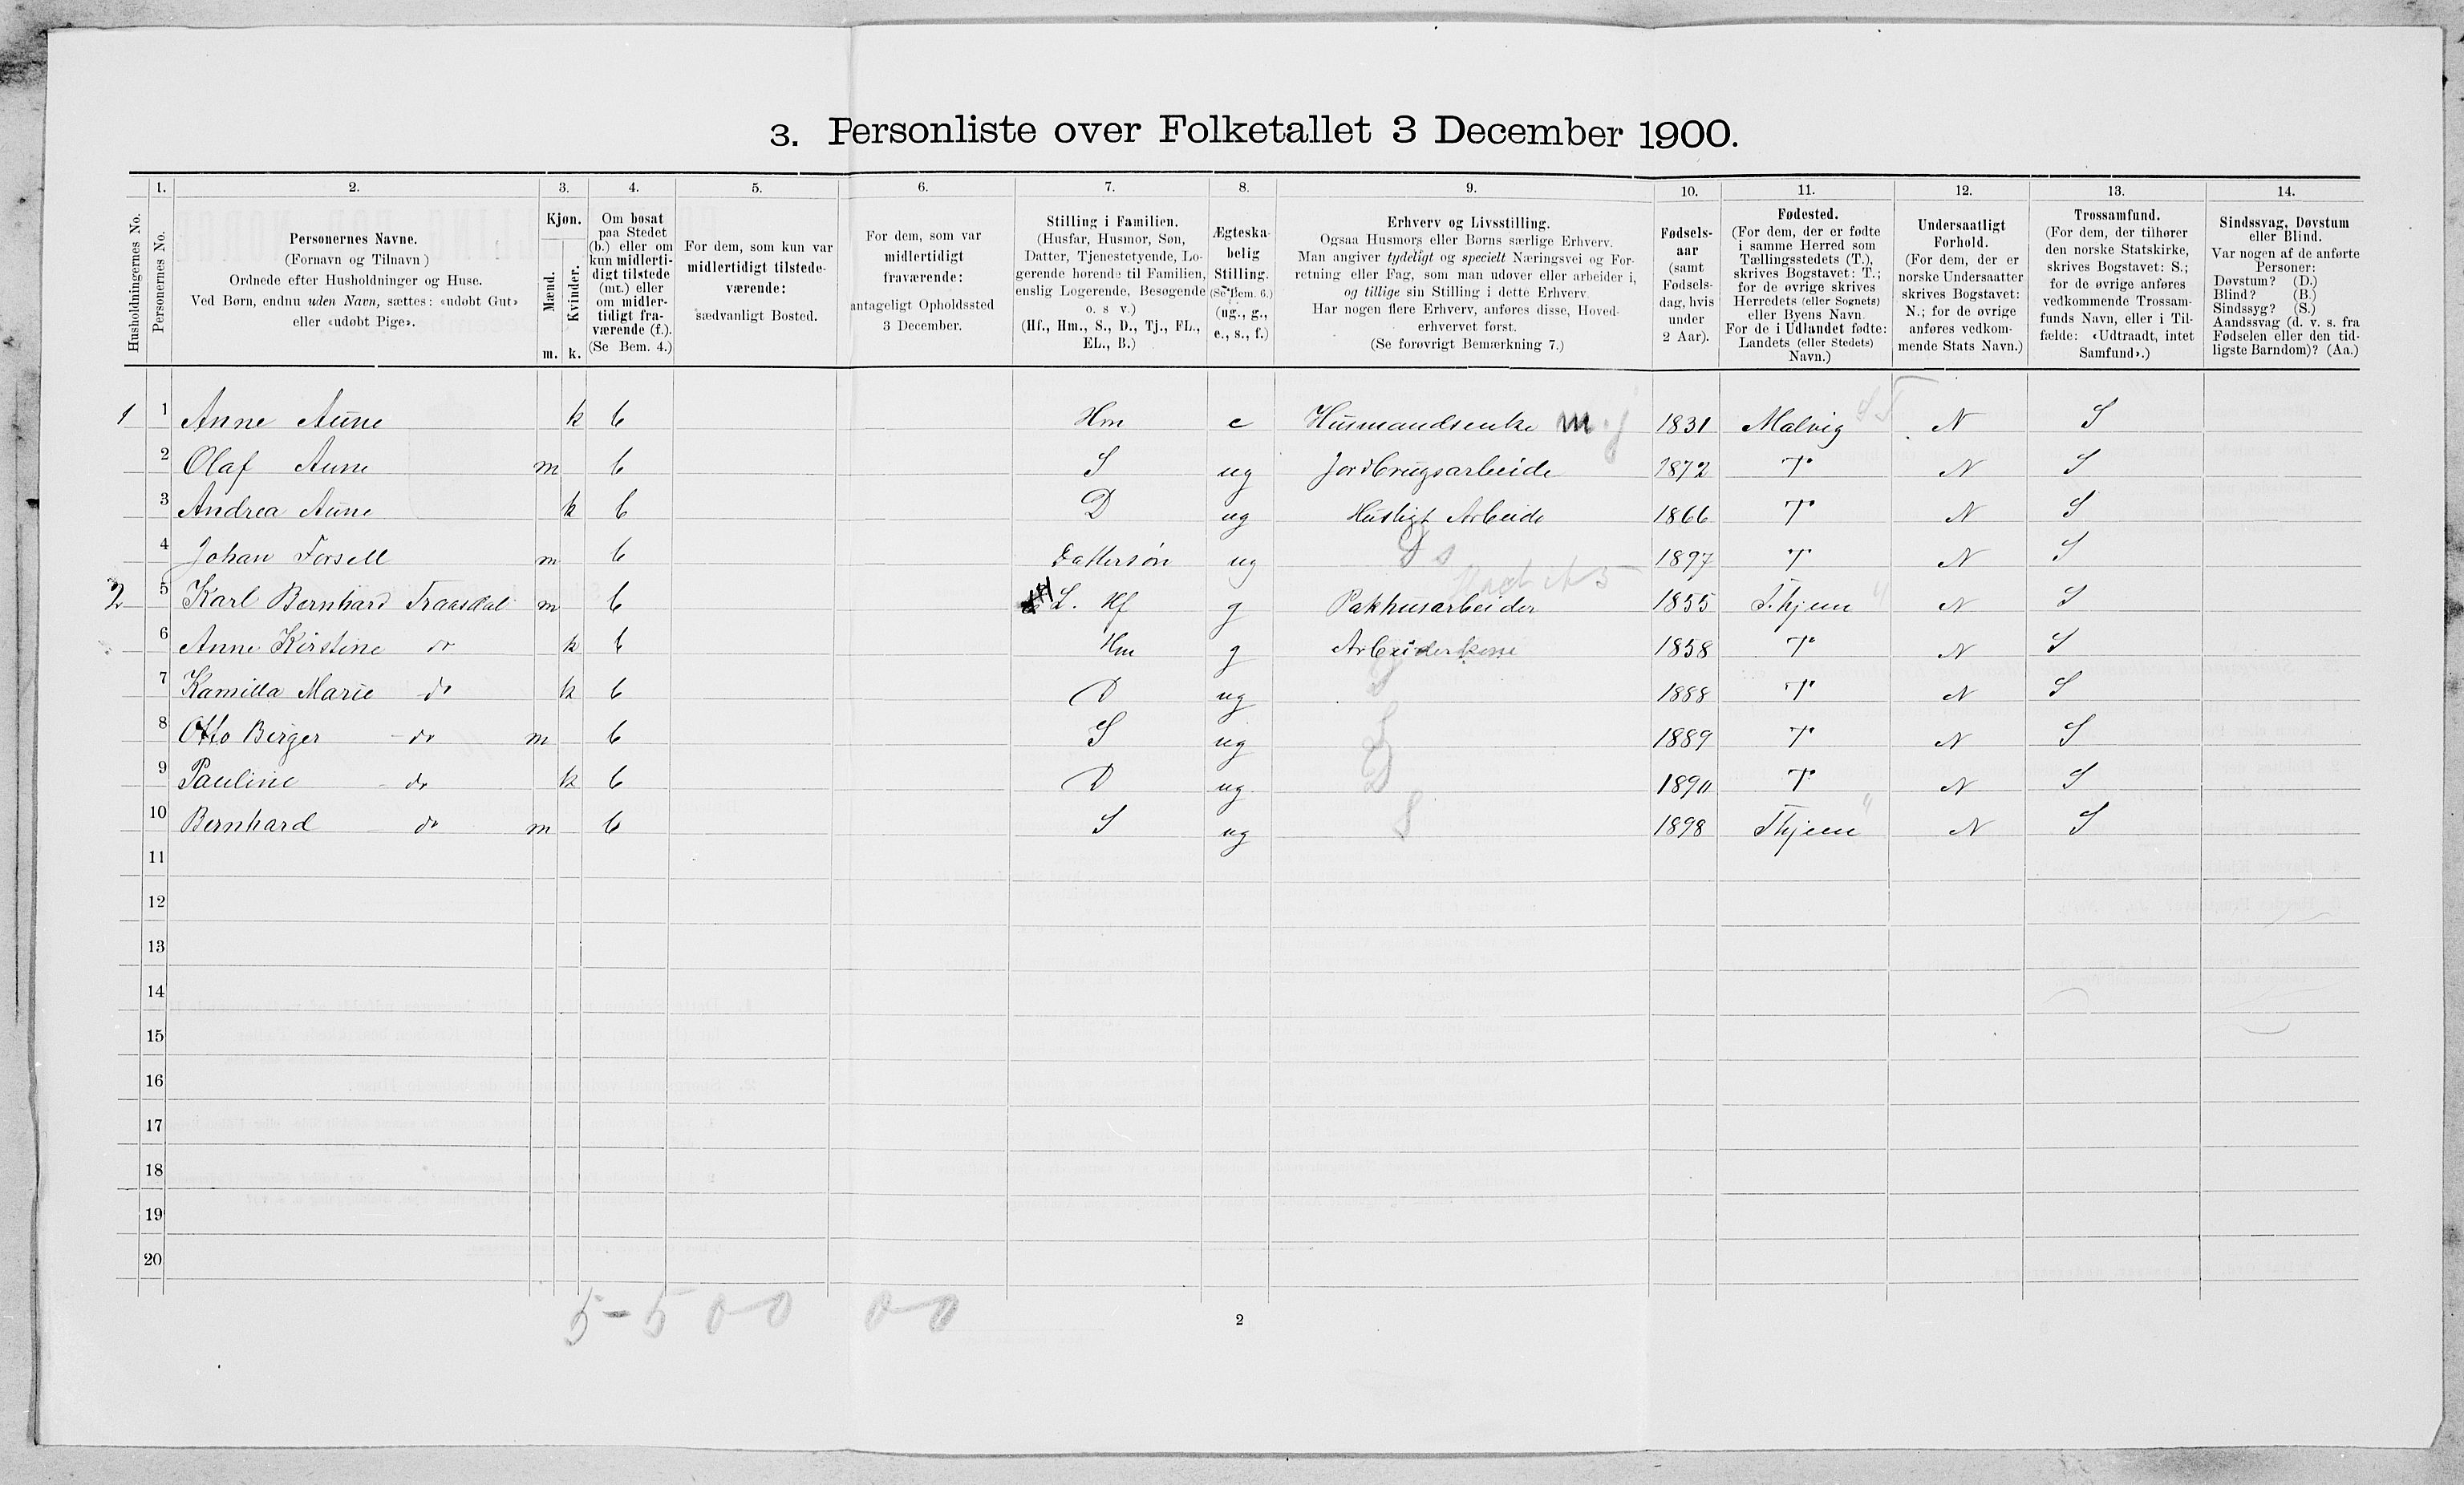 3. Personliste over Folketallet 3 December 1900.
1. 2. 3. 4. 5. 6. 7. 8. 9. 10. 11. 12. 13. 14.
Husholdningernes No.
Personernes No.
Personernes Navne.
(Fornavn og Tilnavn)
Ordnede efter Husholdninger og Huse.
Ved Børn, endnu uden Navn, sættes: «udøbt Gut»
eller «udøbt Pige».
Kjøn.
Mænd. Kvinder.
m. k.
Om bosat
paa Stedet
(b.) eller om
kun midlerti-
digt tilstede
(mt.) eller
om midler-
tidigt fra-
værende (f.).
(Se Bem. 4.)
For dem, som kun var
midlertidigt tilstede-
værende:
sædvanligt Bosted.
For dem, som var
midlertidigt
fraværende:
antageligt Opholdssted
3 December.
Stilling i Familien.
(Husfar, Husmor, Søn,
Datter, Tjenestetyende, Lo-
gerende hørende til Familien,
enslig Logerende, Besøgende
o. s v.)
(Hf., Hm., S., D., Tj., FL.,
EL., B.)
Ægteska-
belig
Stilling.
(Se Bem. 6.)
(ug., g.,
e., s., f.)
Erhverv og Livsstilling.
Ogsaa Husmors eller Børns særlige Erhverv.
Man angiver tydeligt og specielt Næringsvei og For-
retning eller Fag, som man udøver eller arbeider i,
og tillige sin Stilling i dette Erhverv.
Har nogen flere Erhverv, anføres disse, Hoved-
erhvervet først.
(Se forøvrigt Bemærkning 7.)
Fødsels-
aar
(samt
Fødsels-
dag, hvis
under
2 Aar).
Fødested.
(For dem, der er fødte
i samme Herred som
Tællingsstedets (T.),
skrives Bogstavet: T.;
for de øvrige skrives
Herredets (eller Sognets)
eller Byens Navn.
For de i Udlandet fødte:
Landets (eller Stedets)
Navn.)
Undersaatligt
Forhold.
(For dem, der er
norske Undersaatter
skrives Bogstavet:
N.; for de øvrige
anføres vedkom-
mende Stats Navn.)
Trossamfund.
(For dem, der tilhører
den norske Statskirke,
skrives Bogstavet: S.;
for de øvrige anføres
vedkommende Trossam-
funds Navn, eller i Til-
fælde: «Udtraadt, intet
Samfund».)
Sindssvag, Døvstum
eller Blind.
Var nogen af de anførte
Personer:
Døvstum? (D.)
Blind? (B.)
Sindssyg? (S.)
Aandssvag (d. v. s. fra
Fødselen eller den tid-
ligste Barndom)? (Aa.)
1 1 Anne Aune k b Hm e Husmandsenke m.j 1831 Malvig ST N S
2 Olaf Aune m b S ug Jordbrugsarbeide 1872 T N S
3 Andrea Aune k b D ug Husligt Arbeide 1866 T N S
4 Johan Forsell m b Dattersøn ug 1897 T N S
2 5 Karl Bernhard m b L. Hf g Pakhusarbeider 1855 N S
6 Anne Kirstine do k b Hm g Arbeiderkone 1858 T N S
7 Kamilla Marie do k b D ug 1888 T N S
8 Otto Birger do m b S ug 1889 T N S
9 Pauline do k b D ug T N S
10 Bernhard do m b S ug 1898 N S
11
12
13
14
15
16
17
18
19
20
5-5 0 0 0 0
2